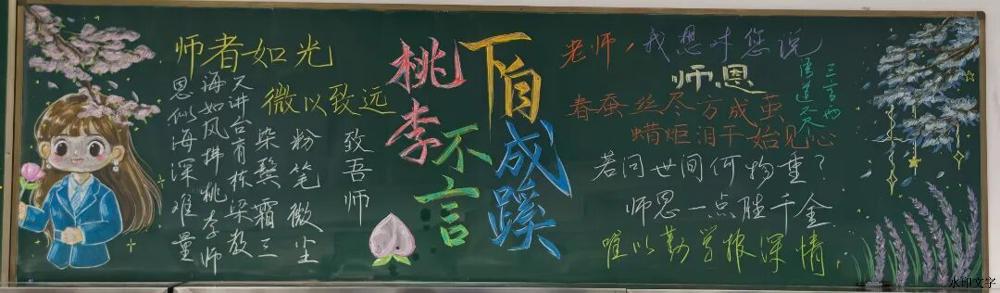 师者如光
微以致远
致吾师
粉笔微尘
染鬓霜三
尺讲台育栋梁教
诲如风拂桃李师
恩似海深难量
桃李
不言
下自
成蹊
老师，我想对您说
师恩
春蚕丝尽方成茧
蜡炬泪干始见心
若问世间何物重？
师恩一点胜千金
唯以勤学报深情
水印文字